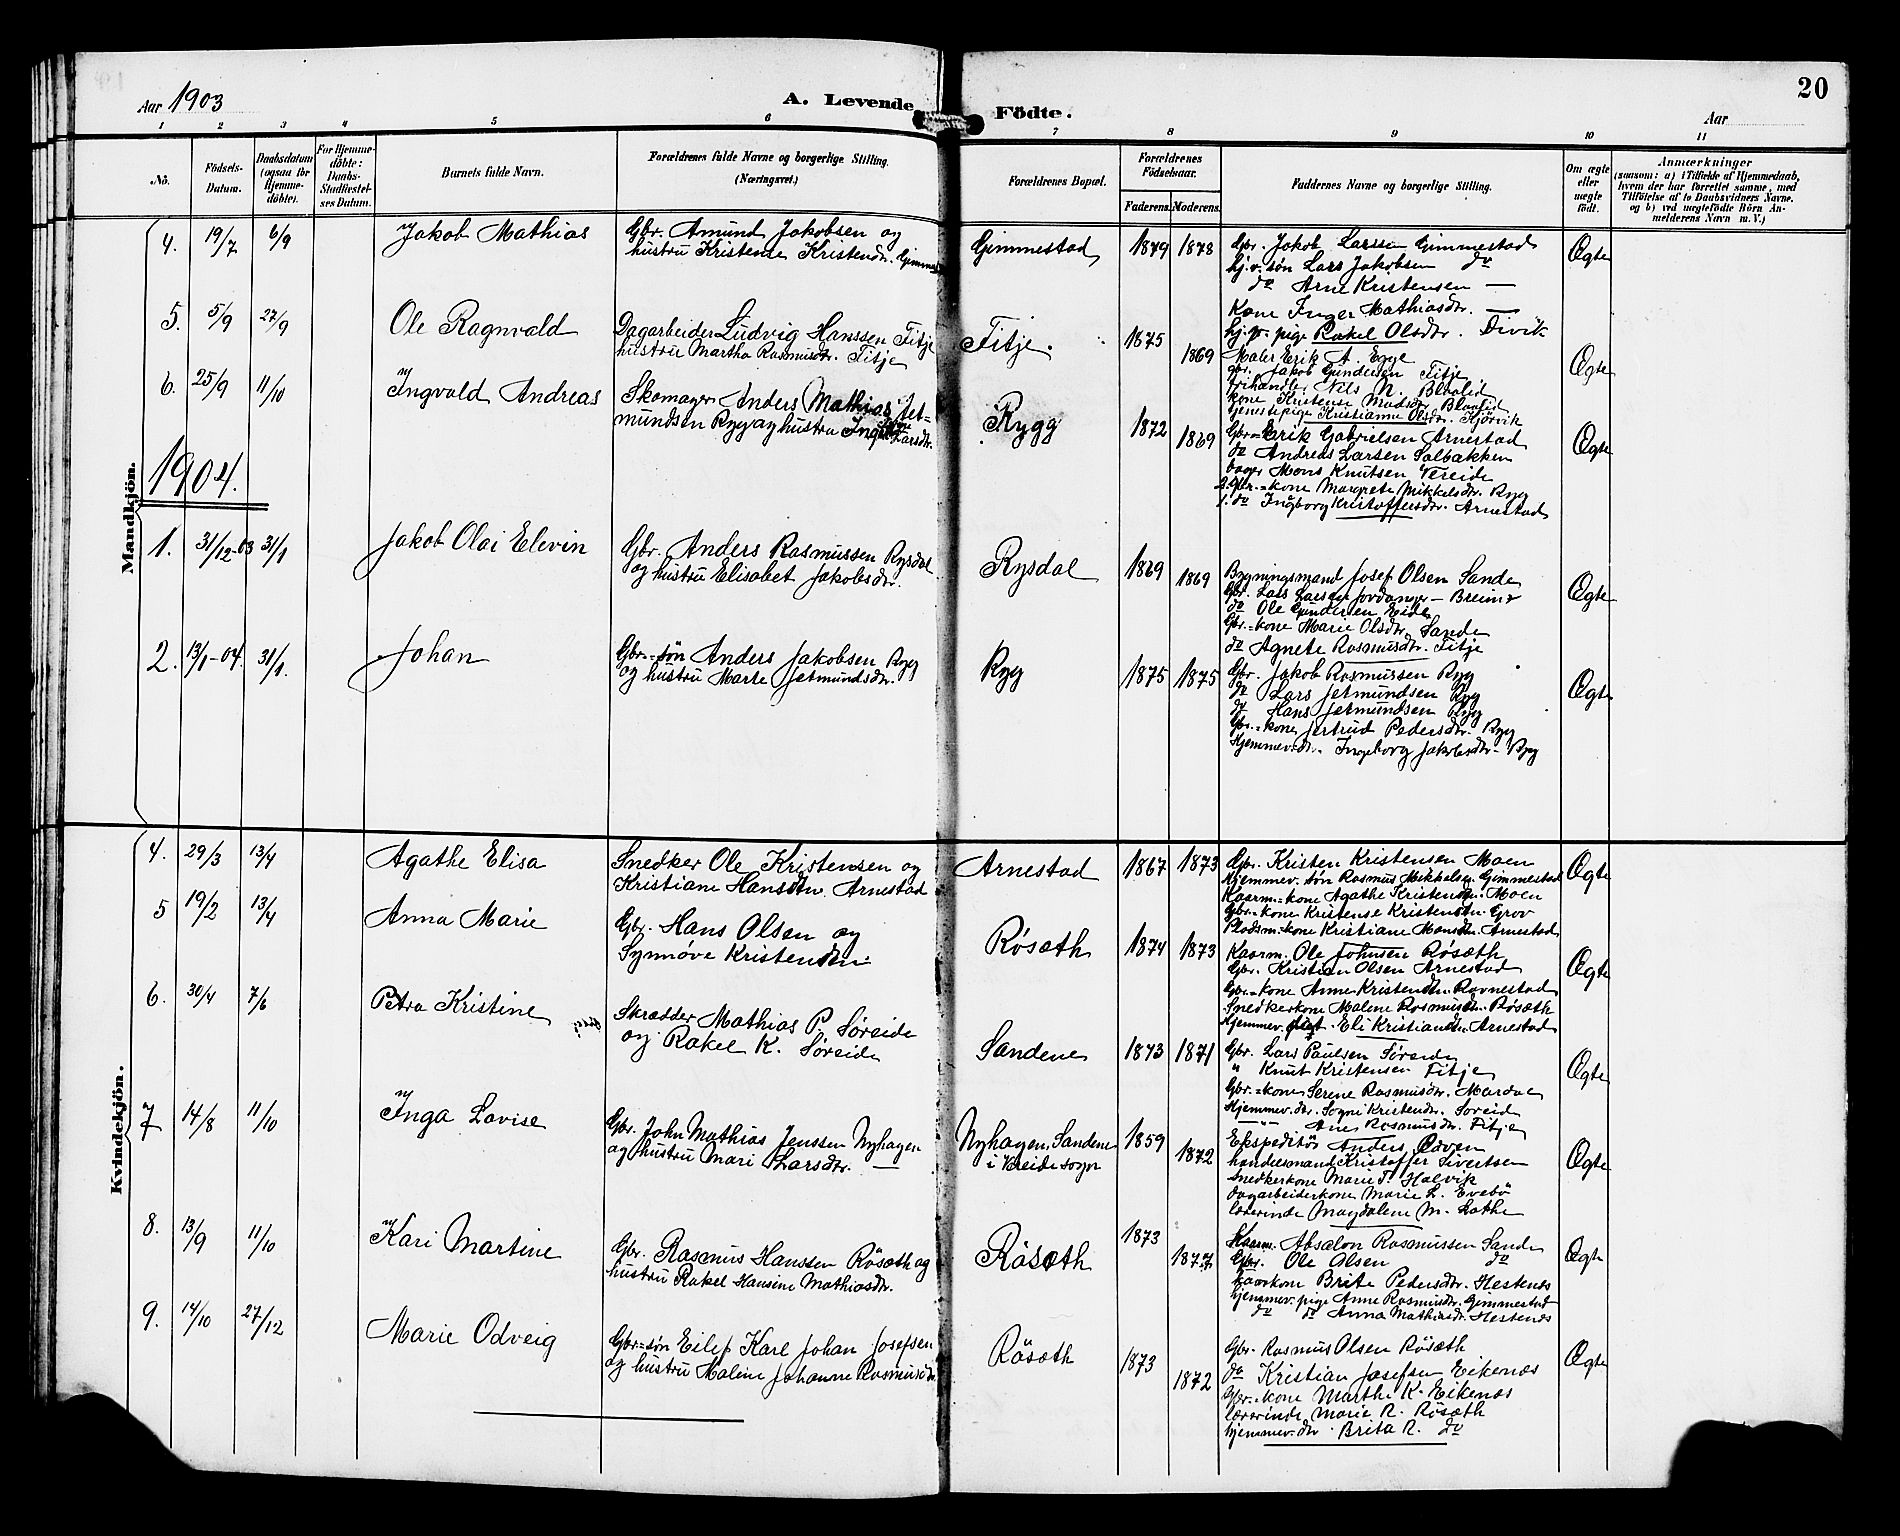 Aar 1903
A. Levende Födte.
20
Aar
1 2 3 4 5 6 7 8 9 10 11
No.
Födsels-
Datum.
Daabsdatum
(ogsaa for
Hjemme-
döbte).
For Hjemme-
döbte:
Daabs-
Stadfæstel-
ses Datum.
Barnets fulde Navn.
Forældrenes fulde Navne og borgerlige Stilling.
(Næringsvei.)
Forældrenes Bopæl.
Forældrenes
Födselsaar.
Faderens.
Moderens.
Faddernes Navne og borgerlige Stilling.
Om ægte
eller
uægte
født.
Anmærkninger
(saasom: a) i Tilfælde af Hjemmedaab,
hvem der har forrettet samme, med
Tilföielse af to Daabsvidners Navne.
og b) ved uægtefödte Börn An-
melderens Navn m. V.)
Mandkjön.
4. 19/7 6/9 Jakob Mathias
Gbr. Amund Jakobsen og
hustru Kristense Kristensdr.
Gimmestad 1879 1878
Gbr. Jakob Larssen Gimmestad
hj.v. søn Lars Jakobsen do
do Arne Kristensen —
Kone Inger Mathiasdr. —
hj.v. pige Rakel Olsdr. Dvik
Ægte
5. 5/9 27/9 Ole Ragnvald
Dagarbeider Ludvig Hanssen Fitje
hustru Martha Rasmusdr. Fitje
Fitje. 1875 1869
Maler Erik A. Egge
gbr. Jakob Gundersen Fitje
Nils N. Blaalid
kone Kristense Madsdr. Blaalid
tjenestepige Kristianne Olsdr. Kjørvik
Ægte
6. 25/9 11/10 Ingvald Andreas
Skomager Anders Mathias Jet-
mundsen Ryg og hustru Larsdr.
Rygg 1872 1869
Gbr. Erik Gabrielsen Arnestad
do Andreas Larsen Solbakken
bager Mons Knutsen Vereide
2. Gbr.-kone Margrete Mikkelsdr. Ryg
1. do Ingborg Kristoffersdr. Arnestad
Ægte
1904.
1. 31/12-03 31/1 Jakob Olai Elevin
Gbr. Anders Rasmussen Rysdal
og hustru Elisabet Jakobsdr.
Rysdal 1869 1869
Bygningsmand Josef Olsen Sande
Gbr. Lars Larsen Jordanger - Breim
do Ole Gundersen Eide
Gbr.-kone Marie Olsdr. Sande
do Agnete Rasmusdr. Fitje
Ægte
2. 13/1-04. 31/1. Johan
Gbr.-søn Anders Jakobsen Ryg
og hustru Marte Jetmundsdr.
Ryg 1875 1875
Gbr. Jakob Rasmussen Ryg
do Lars Jetmundsen Ryg
do Hans Jetmundsen Ryg
Gbr.-kone Jertrud Pedersdr. Ryg
Hjemmev. dr. Ingeborg Jakobsdr. Ryg
Ægte
Kvindekjön.
4. 29/3 13/4 Agathe Elisa
Snedker Ole Kristensen og
Kristiane Hansdtr. Arnestad
Arnestad 1867 1873
Gbr. Kristen Kristensen Moen
Hjemmev. søn Rasmus Mikkelsen Gimmestad
Kaarm.-kone Agathe Kristensdtr. Moen
Gbr.-kone Kristense Kristensdtr. Grov
Pladsm.-kone Kristiane Monsdtr. Arnestad
Ægte
5 19/2 13/4 Anna Marie
Gbr. Hans Olsen og
Synnøve Kristensdtr.
Røsæth 1874 1873
Kaarm. Ole Johnsen Røsæth
Gbr. Kristian Olsen Arnestad
Gbr.-kone Anne Kristensdtr. Ravnestad
Snedkerkone Malene Rasmusdtr. Røsæth
Hjemmev. Eli Kristiansdtr. Arnestad
Ægte
6. 30/4 7/6 Petra Kristine
Skrædder Mathias P. Søreide
og Rakel K. Søreide
Sandene 1873 1871
Gbr. Lars Paulsen Søreide
" Knut Kristensen Fitje
Gbr.-kone Serene Rasmusdr. Mardal
Hjemmev. dr. Sogni Kristensdr. Søreid
—"— Ane Rasmusdr. Fitje
Ægte
7 14/8 11/10 Inga Lovise
Gbr. John Mathias Jenssen Nyhagen
og hustru Mari Larsdr. —
Nyhagen, Sandene
i Vereide sogn
1859 1872
Ekspeditør Anders Odven
handelsmand Kristoffer Sivertsen
Snedkerkone Marie T. Halvik
dagarbeiderkone Marie L. Evebø
lærerinde Magdalene M. Lothe
Ægte
8. 13/9 11/10 Kari Martine
Gbr. Rasmus Hanssen Røsæth og
hustru Rakel Hansine Mathiasdr.
Røsæth 1873 1877
Kaarm. Absalon Rasmussen Sande
Gbr. Ole Olsen do
kaarkone Brite Pedersdr. Hestenes
hjemmev. pige Anne Rasmusdr. Gimmestad
do do Anna Mathiasdr. Hestenes
Ægte
9. 14/10 27/12 Marie Odveig
Gbr-søn Eilef Karl Johan Josefsen
og hustru Maline Johanne Rasmusdr.
Røsæth 1873 1872
Gbr. Rasmus Olsen Røsæth
do Kristian Josefsen Eikenæs
Gbr.-kone Marthe K. Eikenæs
lærerinde Marie R. Røsæth
hjemmev. dtr. Brita R. do
Ægte